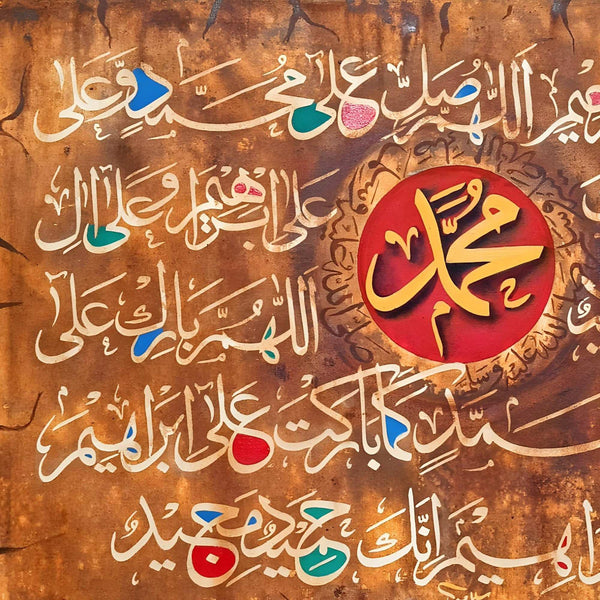 اللّٰهُمَّ صَلِّ عَلٰى مُحَمَّدٍ وَّعَلٰى
عَلٰى اِبْرَاهِيْمَ وَعَلٰى اٰلِ
مُحَمَّد
اللّٰهُمَّ بَارِكْ عَلٰى
كَمَا بَارَكْتَ عَلٰى اِبْرَاهِيْمَ
اِنَّكَ حَمِيْدٌ مَجِيْدٌ